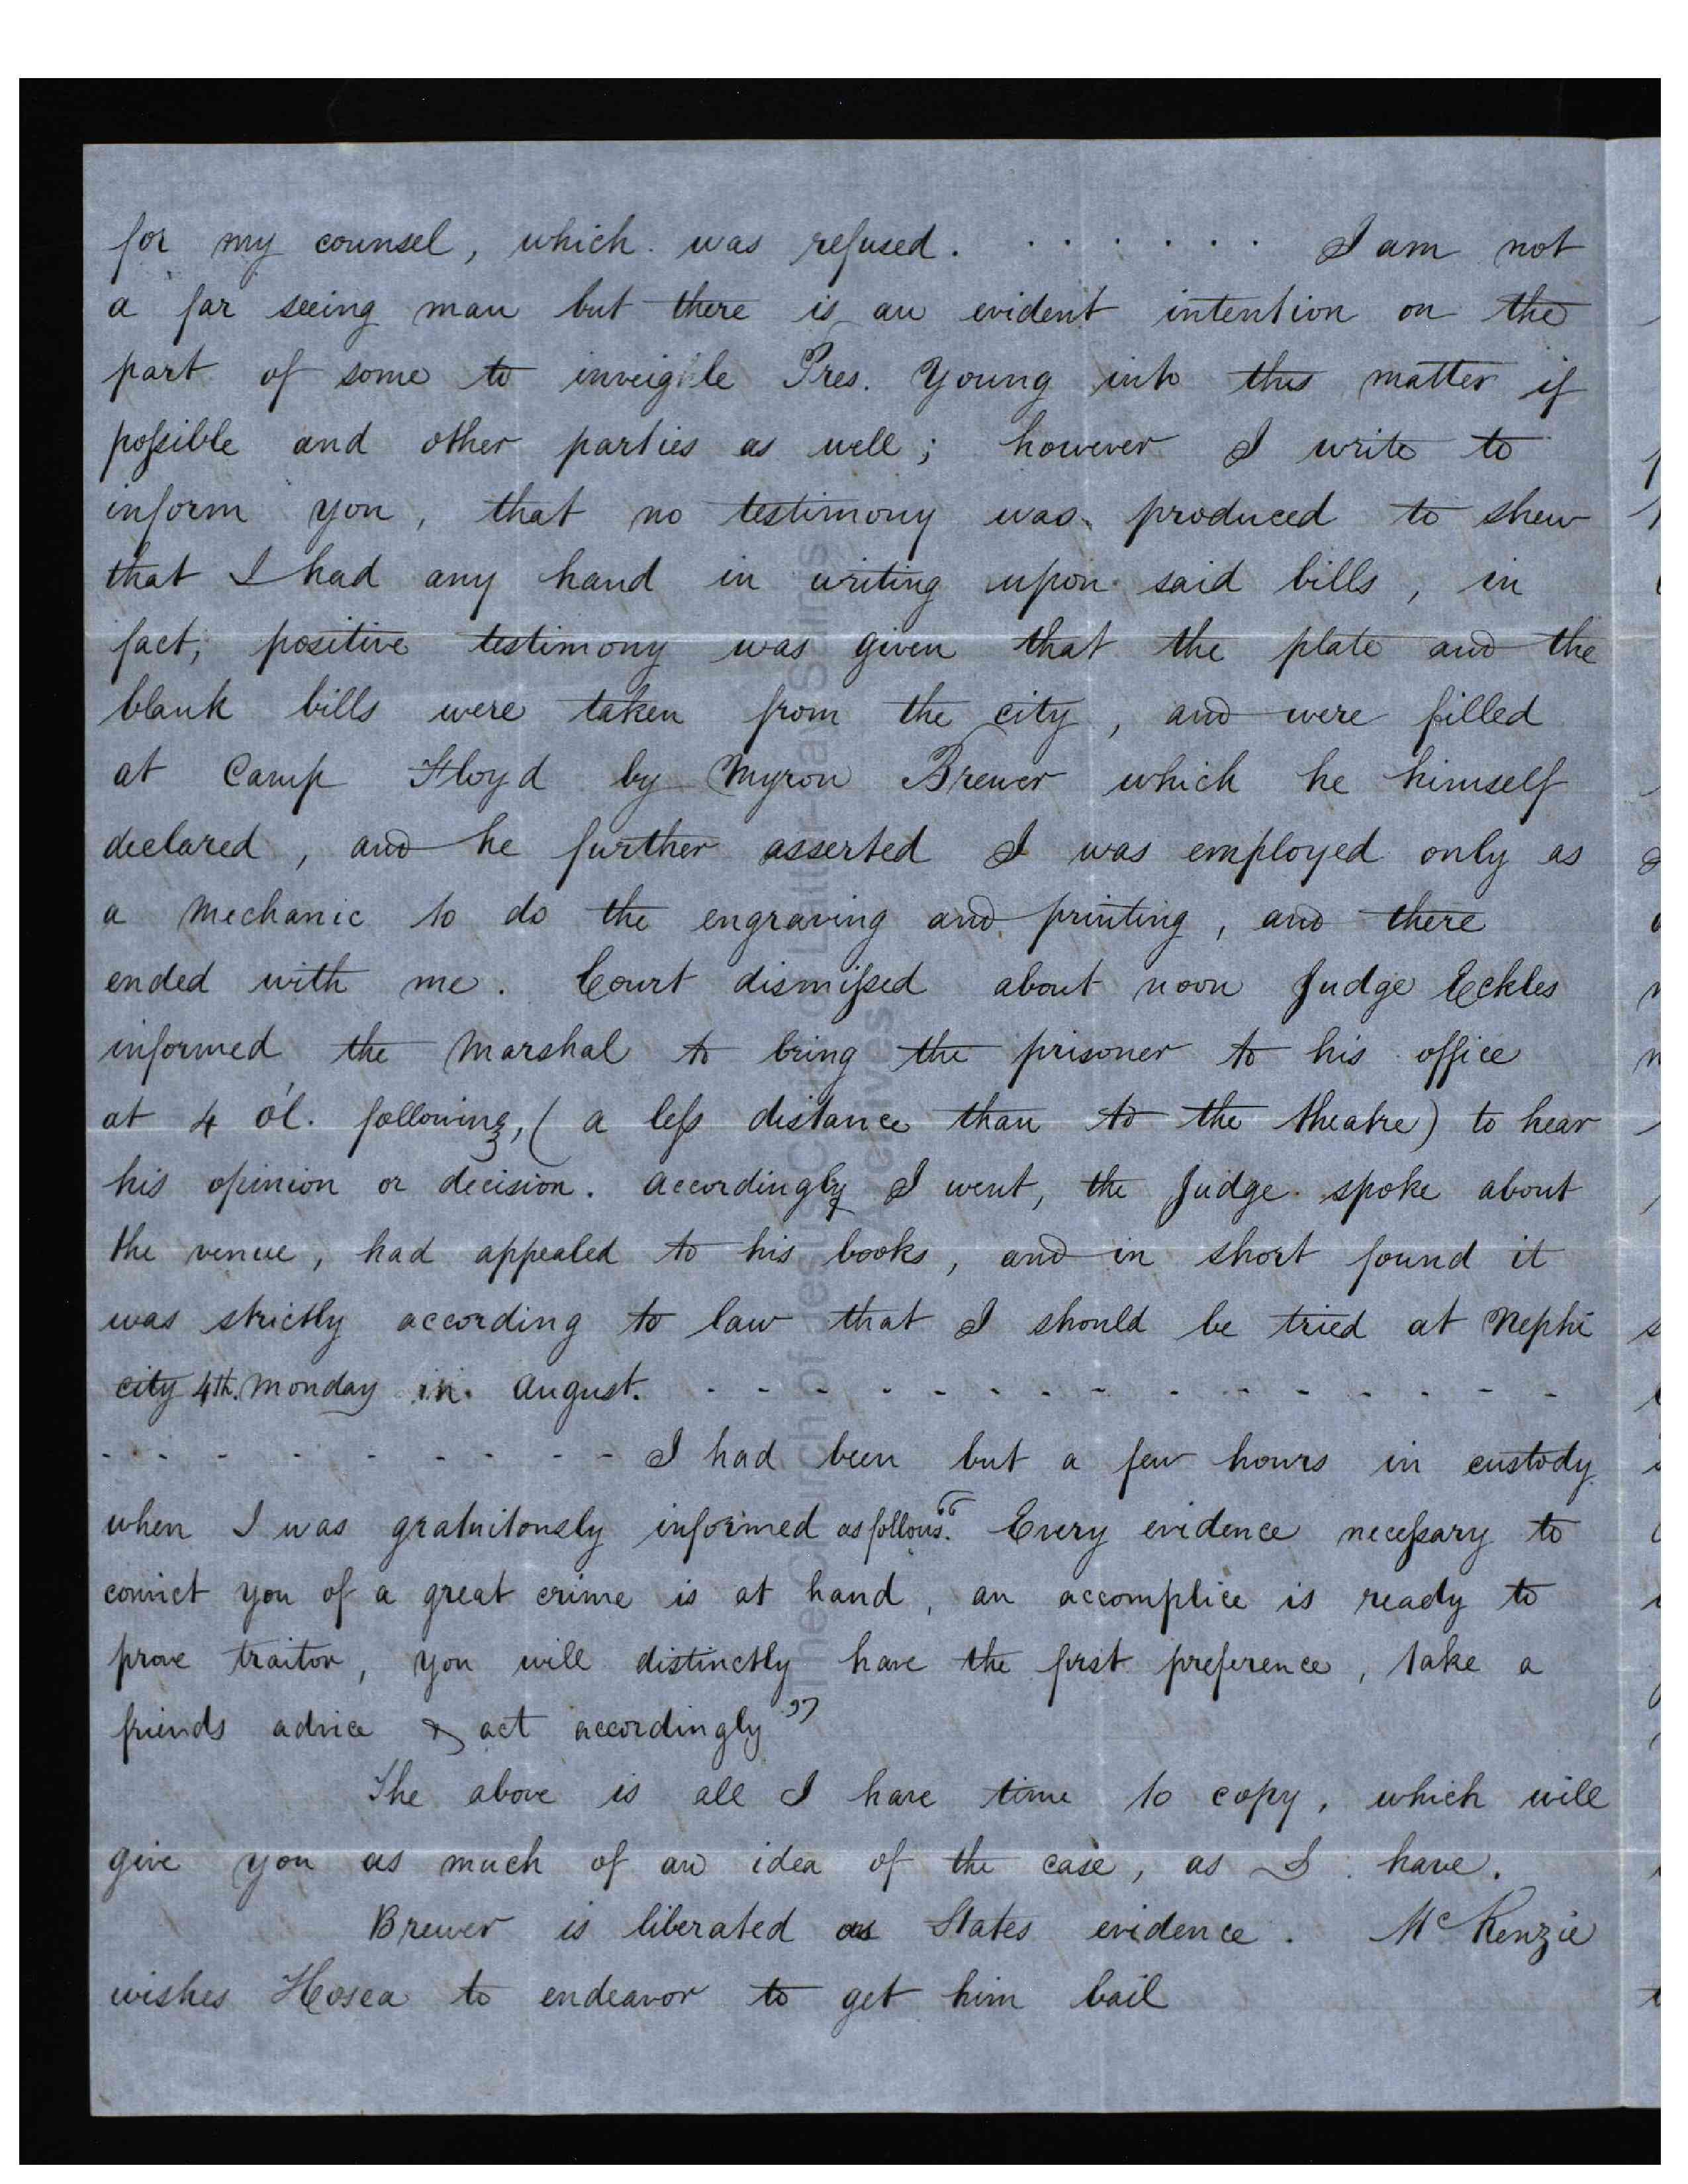 for my counsel, which was refused. . . . . . . . I am not
a far seeing man but there is an evident intention on the
part of some to inveigle Pres. Young into this matter if
possible and other parties as well; however I write to
inform you, that no testimony was produced to shew
that I had any hand in writing upon said bills, in
fact, positive testimony was given that the plate and the
blank bills were taken from the city, and were filled
at Camp Floyd by Myron Brewer which he himself
declared, and he further asserted I was employed only as
a mechanic to do the engraving and printing, and there
ended with me. Court dismissed about noon Judge Eckles
informed the Marshal to bring the prisoner to his office
at 4 o'l. following, (a less distance than to the theatre) to hear
his opinion or decision. accordingly I went, the Judge spoke about
the venue, had appealed to his books, and in short found it
was strictly according to law that I should be tried at Nephi
city 4th. Monday in August. - - - - - - - - - - - - -
- - - - - - - - - I had been but a few hours in custody
when I was gratuitously informed as follows. "Every evidence necessary to
convict you of a great crime is at hand, an accomplice is ready to
prove traitor, you will distinctly have the first preference, take a
friends advice & act accordingly"
The above is all I have time to copy, which will
give you as much of an idea of the case, as I have.
Brewer is liberated as States evidence. McKenzie
wishes Hosea to endeavor to get him bail